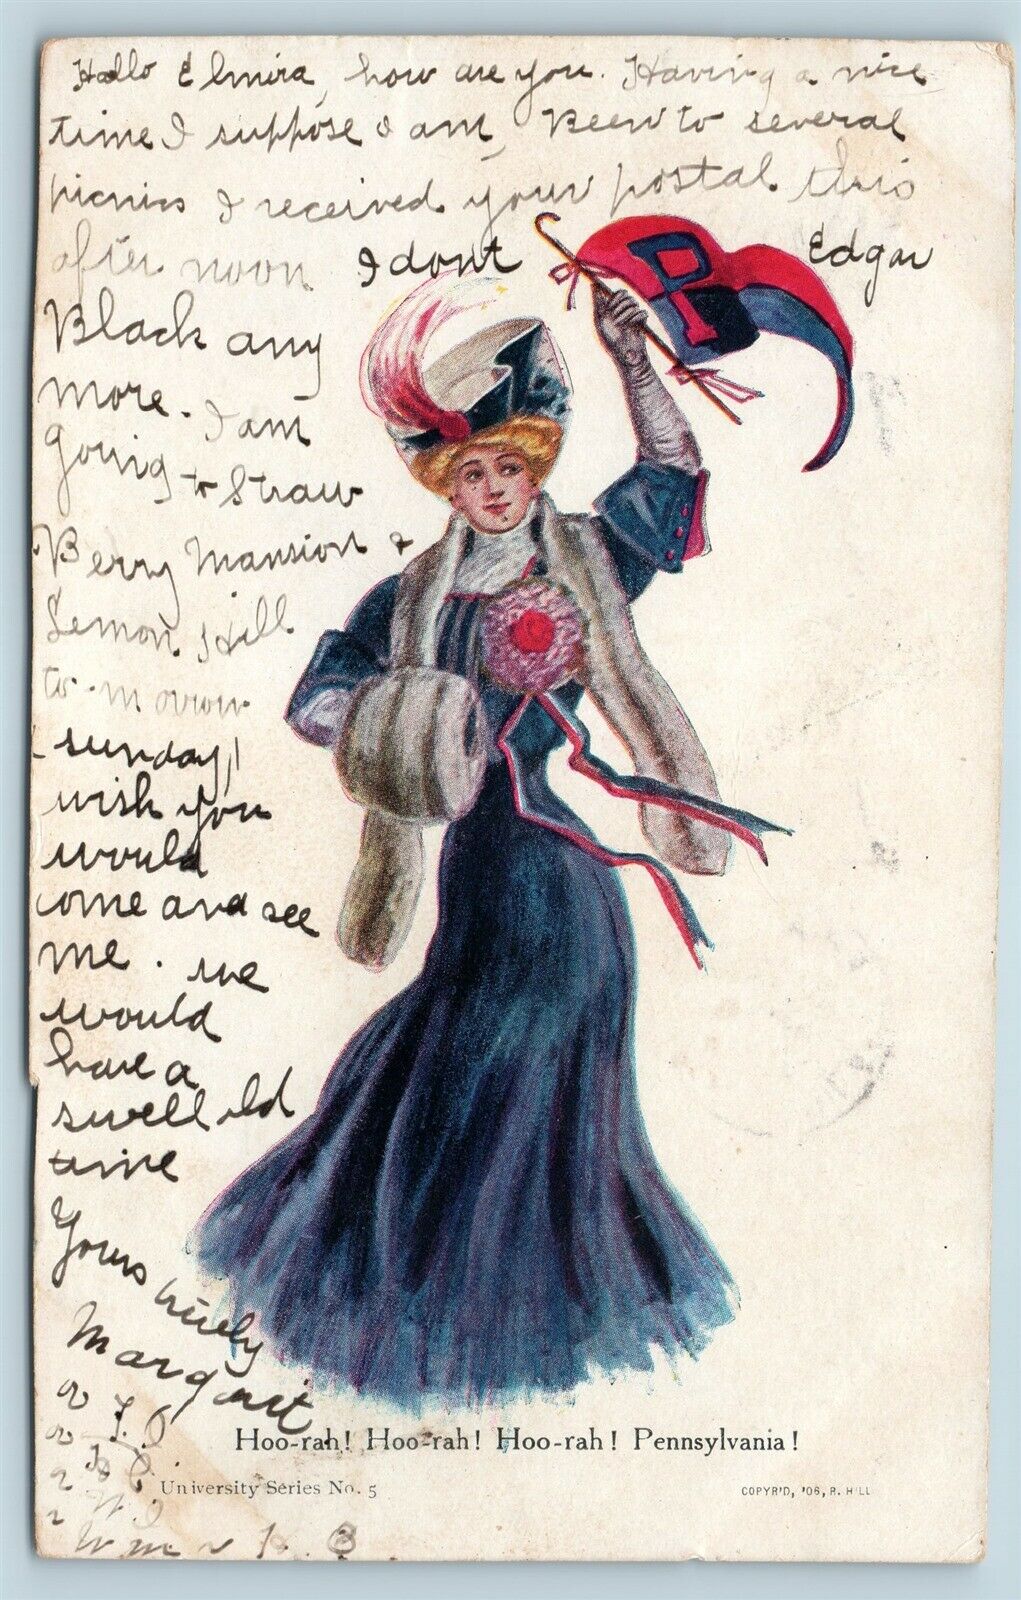 Hallo Elmira, how are you. Having a nice
time I suppose I am, Been to several
picnics I received your postal this
after noon. I dont Edgar
Black any
more. I am
going to Straw
Berry Mansion &
Lemon Hill
to-morrow
(sunday)
wish you
would
come and see
me. we
would
have a
swell old
time
Yours truely
Margaret
P
Hoo-rah! Hoo-rah! Hoo-rah! Pennsylvania!
University Series No. 5
COPYR'D, '06, R. HILL